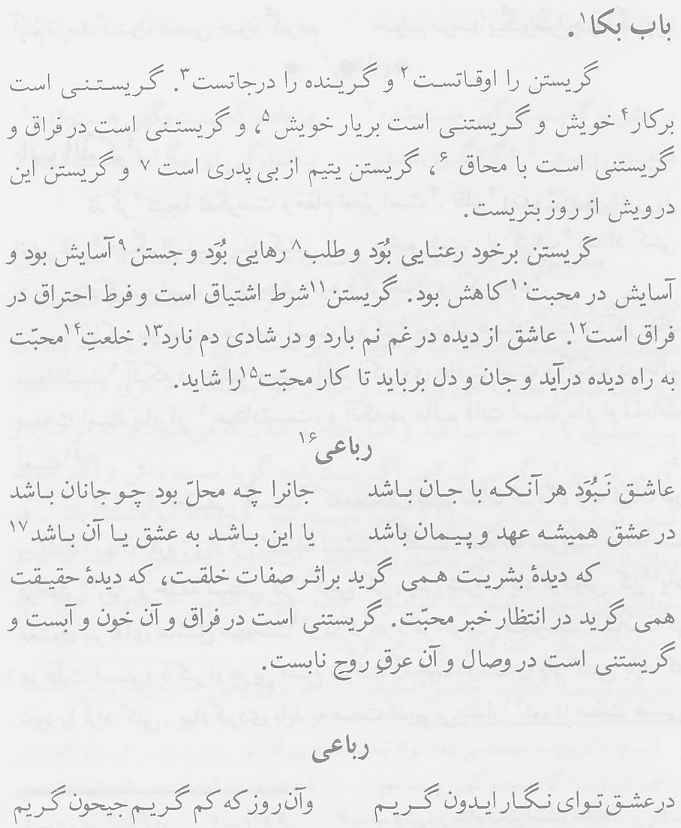 باب بکا۱.
گریستن را اوقاتست۲ و گرینده را درجاتست۳. گریستنی است
برکار۴ خویش و گریستنی است بریار خویش۵، و گریستنی است در فراق و
گریستنی است با محاق ۶، گریستن یتیم از بی پدری است ۷ و گریستن این
درویش از روز بتریست.
گریستن برخود رعنایی بُوَد و طلب۸ رهایی بُوَد و جستن۹ آسایش بود و
آسایش در محبت۱۰ کاهش بود. گریستن۱۱ شرط اشتیاق است و فرط احتراق در
فراق است۱۲. عاشق از دیده در غم نم بارد و در شادی دم نارد۱۳. خلعتِ۱۴ محبّت
به راه دیده درآید و جان و دل برباید تا کار محبّت۱۵ را شاید.
رباعی۱۶
عاشق نَبُوَد هر آنکه با جان باشد جانرا چه محلّ بود چو جانان باشد
در عشق همیشه عهد و پیمان باشد یا این باشد به عشق یا آن باشد۱۷
که دیدهٔ بشریت همی گرید براثر صفات خلقت، که دیدهٔ حقیقت
همی گرید در انتظار خبر محبّت. گریستنی است در فراق و آن خون و آبست و
گریستنی است در وصال و آن عرقِ روحِ نابست.
رباعی
درعشق توای نگار ایدون گریم وآن روز که کم گریم جیحون گریم